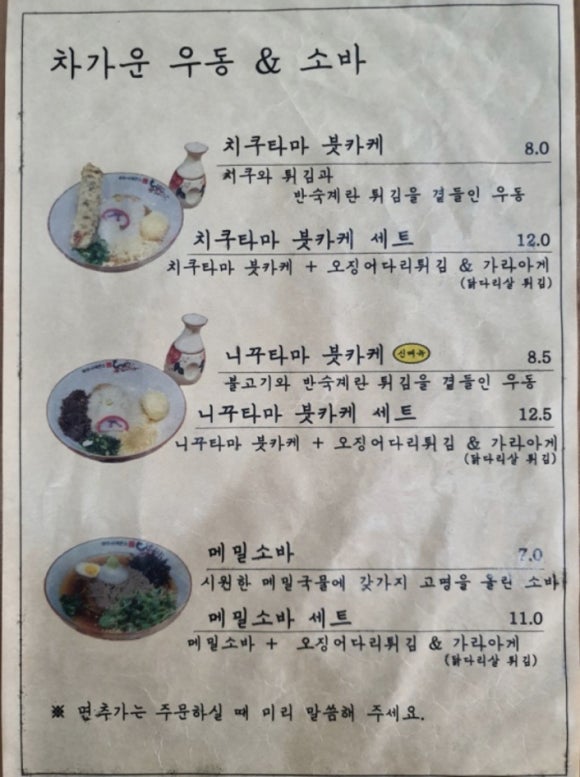 차가운 우동 & 소바
치쿠타마 붓카케 8.0
치쿠와 튀김과
반숙계란 튀김을 곁들인 우동
치쿠타마 붓카케 세트 12.0
치쿠타마 붓카케 + 오징어다리튀김 & 가라아게
(닭다리살 튀김)
니꾸타마 붓카케 신메뉴 8.5
불고기와 반숙계란 튀김을 곁들인 우동
니꾸타마 붓카케 세트 12.5
니꾸타마 붓카케 + 오징어다리튀김 & 가라아게
(닭다리살 튀김)
메밀소바 7.0
시원한 메밀국물에 갖가지 고명을 올린 소바
메밀소바 세트 11.0
메밀소바 + 오징어다리튀김 & 가라아게
(닭다리살 튀김)
※ 면추가는 주문하실 때 미리 말씀해 주세요.